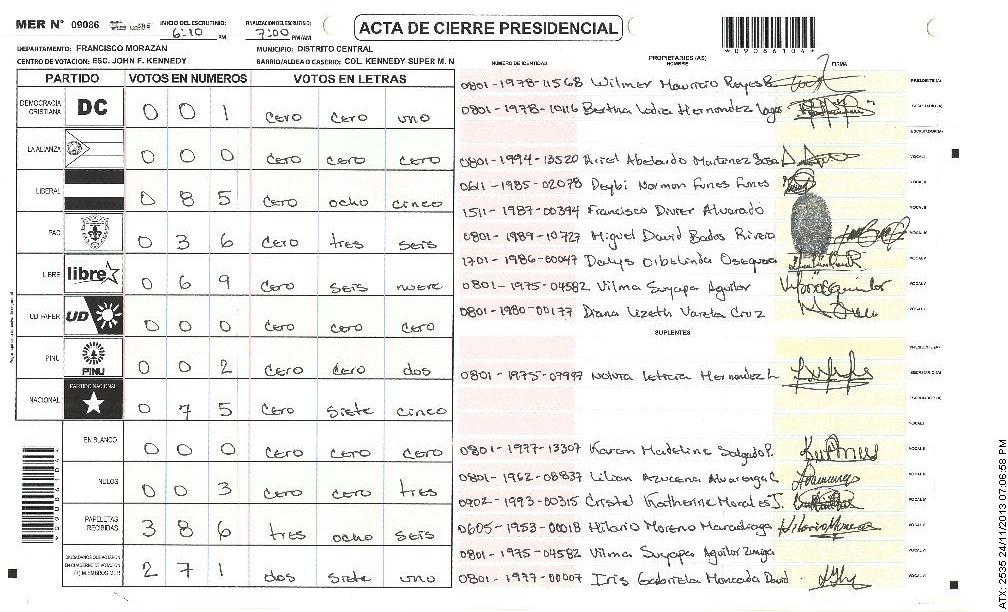 MER N° 09086
INICIO DEL ESCRUTINIO:
6:10 PM
FINALIZACION DEL ESCRUTINIO:
7:00 PM/AM
ACTA DE CIERRE PRESIDENCIAL
*09086104*
DEPARTAMENTO: FRANCISCO MORAZAN
MUNICIPIO: DISTRITO CENTRAL
CENTRO DE VOTACION: ESC. JOHN F. KENNEDY
BARRIO/ALDEA O CASERIO: COL. KENNEDY SUPER M. N
PARTIDO VOTOS EN NUMEROS VOTOS EN LETRAS
DEMOCRACIA CRISTIANA DC 0 0 1 cero cero uno
LA ALIANZA 0 0 0 cero cero cero
LIBERAL 0 8 5 cero ocho cinco
PAC 0 3 6 cero tres seis
LIBRE libre 0 6 9 cero seis nueve
UD FAPER UD 0 0 0 cero cero cero
PINU PINU 0 0 2 cero cero dos
NACIONAL PARTIDO NACIONAL 0 7 5 cero siete cinco
EN BLANCO 0 0 0 cero cero cero
NULOS 0 0 3 cero cero tres
PAPELETAS RECIBIDAS 3 8 6 tres ocho seis
CIUDADANOS QUE VOTARON EN CUADERNO DE VOTACION (+) MIEMBROS MER 2 7 1 dos siete uno
NUMERO DE IDENTIDAD PROPIETARIOS (AS) NOMBRE FIRMA
0801-1978-11568 Wilmer Mauricio Reyes R.
0801-1978-10116 Bertha Lidia Hernandez Lagos
0801-1994-13520 Ariel Abelardo Martinez Sosa
0611-1985-02078 Deybi Norman Funes Funes
1511-1987-00394 Francisco Divier Alvarado
0801-1989-10727 Miguel David Bados Rivera
1701-1986-00047 Dalys Oibelinda Oseguera
0801-1975-04582 Vilma Suyapa Aguilar
0801-1980-00177 Diana Lizeth Varela Cruz
SUPLENTES
0801-1975-07997 Leticia Hernandez L.
0801-1977-13307 Karen Madeline Salgado P.
0801-1962-08837 Lilian Azucena Alvarenga C
0902-1993-00315 Cristel Katherine Morales J.
0605-1953-00018 Hilario Moreno Maradiaga
0801-1975-04582 Vilma Suyapa Aguilar Zuniga
0801-1977-00007 Iris Gabriela Moncada David
ATX: 2535 24/11/2013 07:06:58 PM